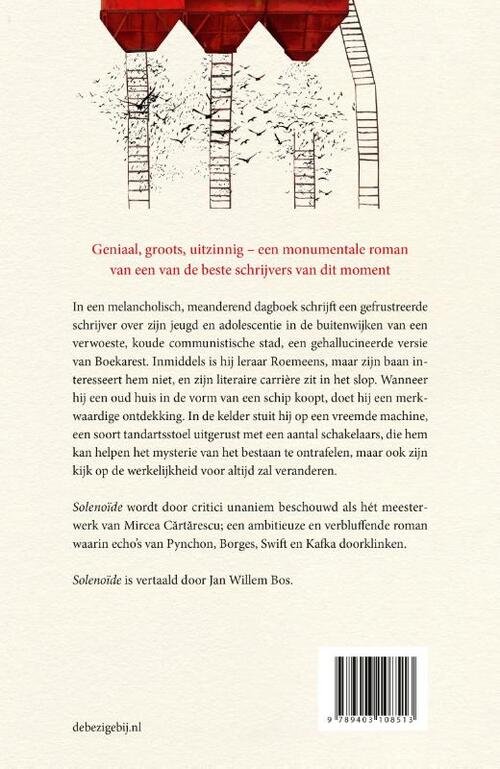 Geniaal, groots, uitzinnig – een monumentale roman
van een van de beste schrijvers van dit moment
In een melancholisch, meanderend dagboek schrijft een gefrustreerde
schrijver over zijn jeugd en adolescentie in de buitenwijken van een
verwoeste, koude communistische stad, een gehallucineerde versie
van Boekarest. Inmiddels is hij leraar Roemeens, maar zijn baan in-
teresseert hem niet, en zijn literaire carrière zit in het slop. Wanneer
hij een oud huis in de vorm van een schip koopt, doet hij een merk-
waardige ontdekking. In de kelder stuit hij op een vreemde machine,
een soort tandartsstoel uitgerust met een aantal schakelaars, die hem
kan helpen het mysterie van het bestaan te ontrafelen, maar ook zijn
kijk op de werkelijkheid voor altijd zal veranderen.
Solenoïde wordt door critici unaniem beschouwd als hét meester-
werk van Mircea Cărtărescu; een ambitieuze en verbluffende roman
waarin echo's van Pynchon, Borges, Swift en Kafka doorklinken.
Solenoïde is vertaald door Jan Willem Bos.
debezigebij.nl
9 789403 108513